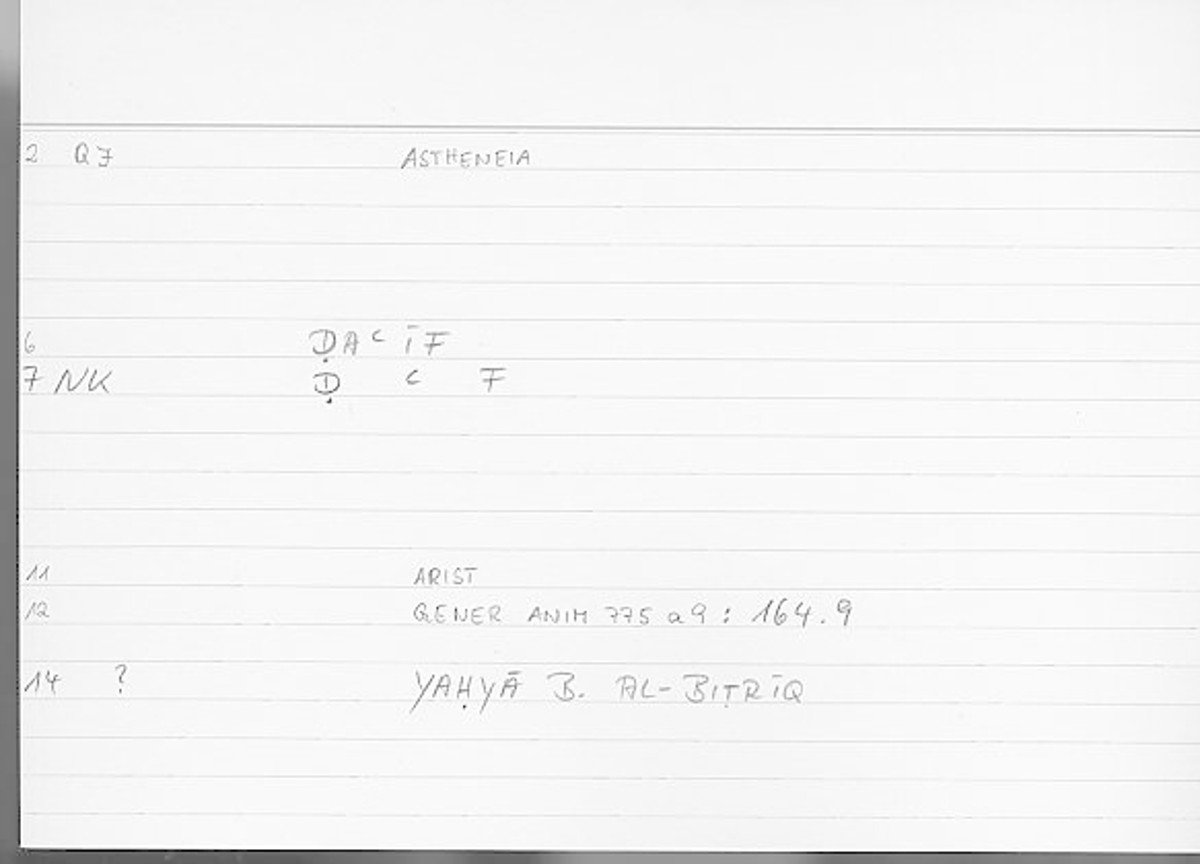 2 QF ASTHENEIA
6 ḌAʿĪF
7 NK Ḍ ʿ F
11 ARIST
12 GENER ANIM 775 a9 : 164.9
14 ? YAḤYĀ B. AL-BIṬRĪQ